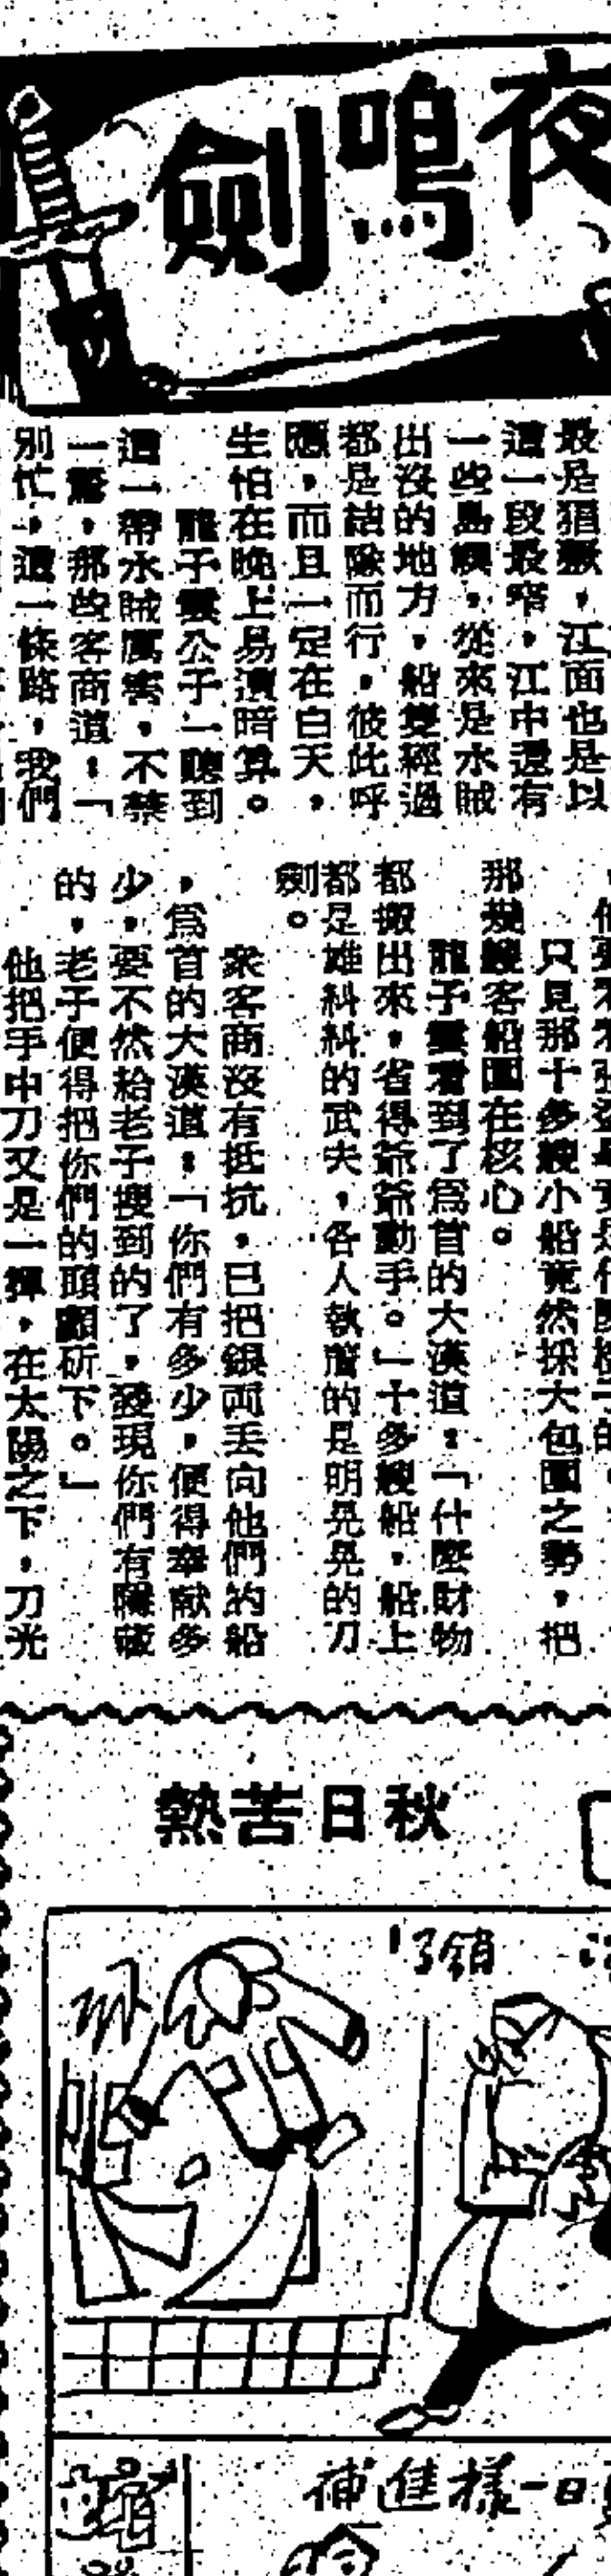 夜鳴劍
最是猖獗，江面也是以
這一段最窄，江中還有
一些島嶼，從來是水賊
出沒的地方，船隻經過
都是結隊而行，彼此呼
應，而且一定在白天，
生怕在晚上易遭暗算。
龍子雲公子一聽到
這一帶水賊厲害，不禁
一驚，那些客商道：「
別忙，這一條路，我們
只見那十多艘小船竟然採大包圍之勢，把
那幾艘客船圍在核心。
龍子雲看到了爲首的大漢道：「什麼財物
都搬出來，省得爺爺動手。」十多艘船，船上
都是雄糾糾的武夫，各人執着的是明晃晃的刀
劍。
衆客商沒有抵抗，已把銀両丟向他們的船
，爲首的大漢道：「你們有多少，便得奉献多
少，要不然給老子搜到的了，發現你們有隱藏
的，老子便得把你們的頭顱斫下。」
他把手中刀又是一揮，在太陽之下，刀光
秋日苦熱
日一樣進補